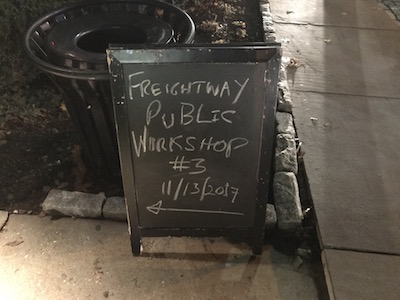 FREIGHTWAY
PUBLIC
WORKSHOP
#3
11/13/2017